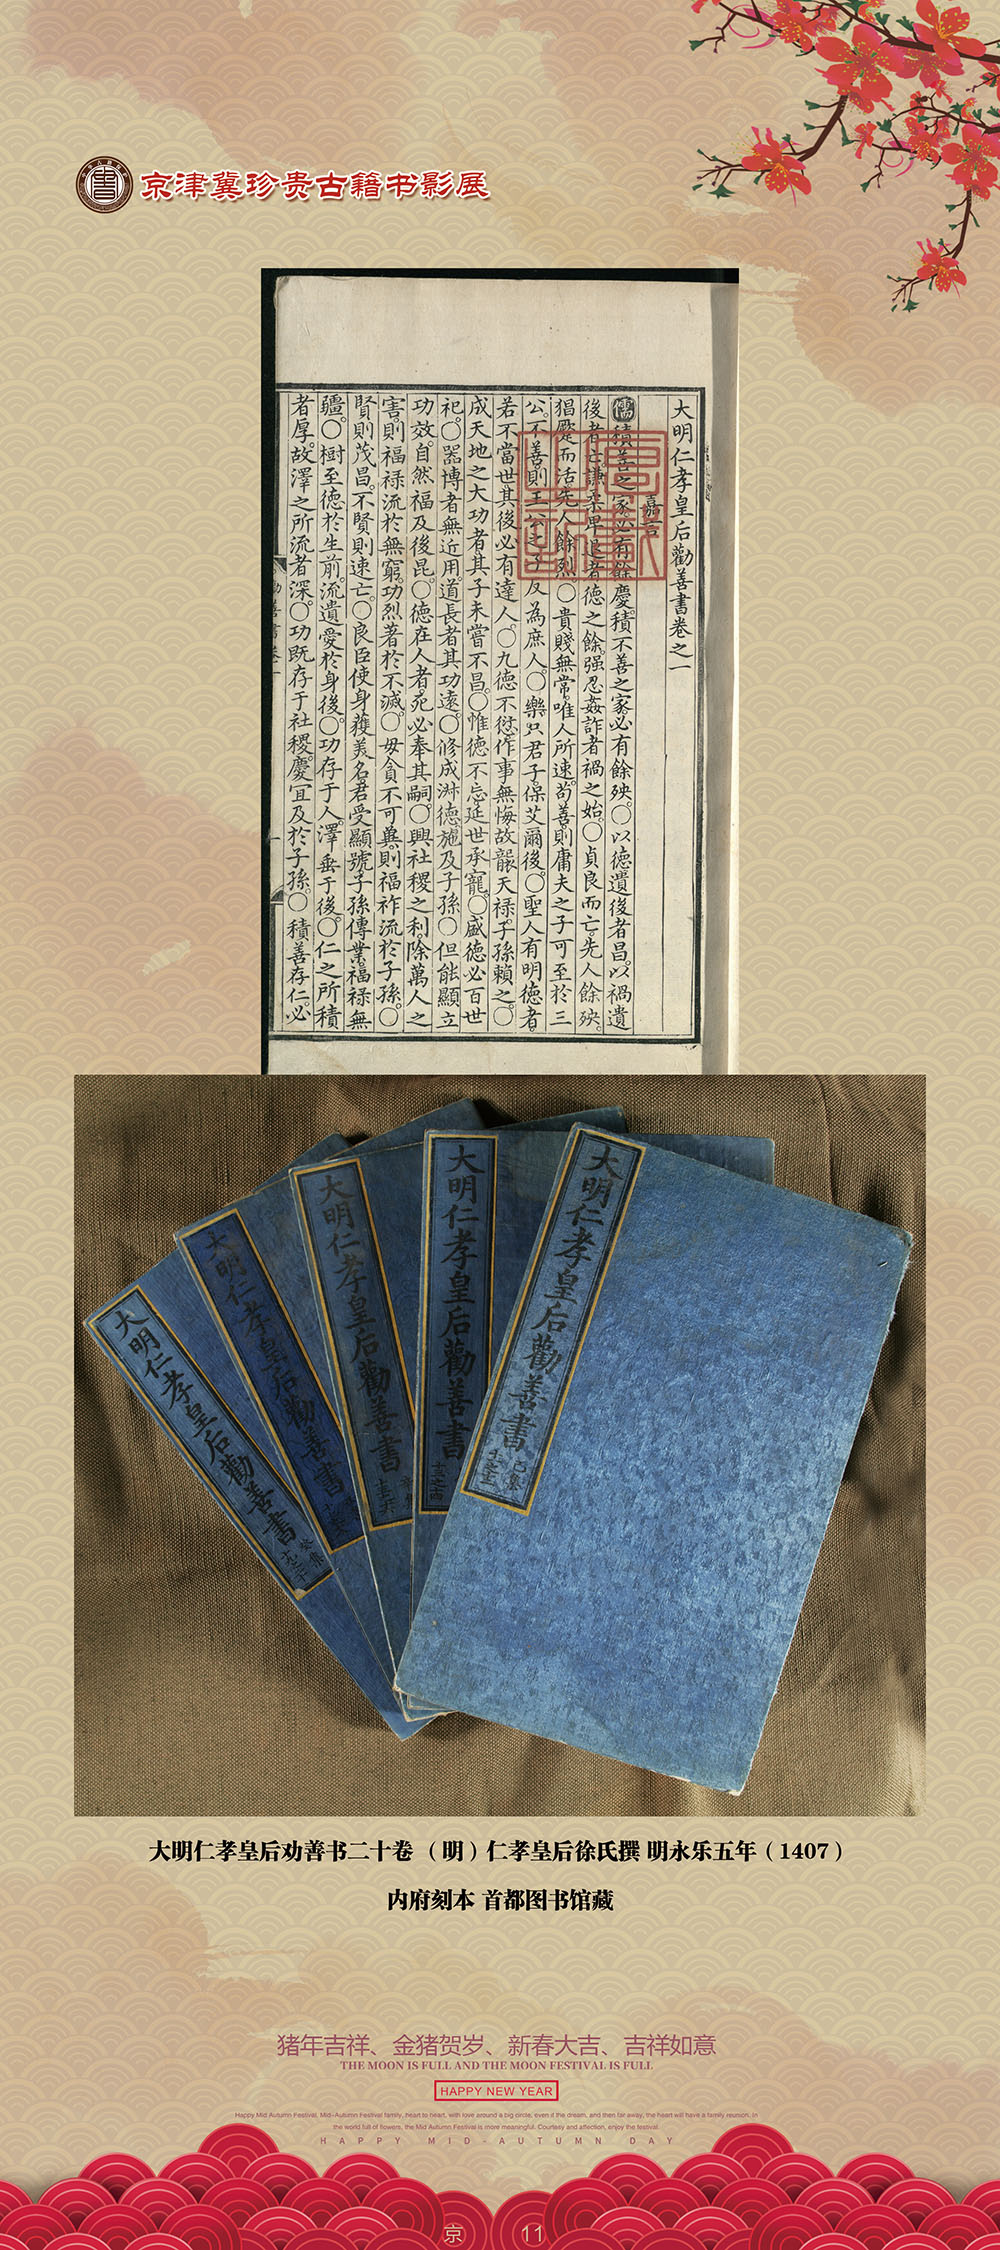 京津冀珍贵古籍书影展
大明仁孝皇后勸善書卷之一
嘉言
儒積善之家必有餘慶。積不善之家必有餘殃。○以德遺後者昌。以禍遺
後者亡。謙柔卑退者德之餘。强忍姦詐者禍之始。○貞良而亡。先人餘殃。
猖蹷而活。先人餘烈。○貴賤無常。唯人所速。苟善則庸夫之子可至於三
公。不善則王公之子反為庶人。○樂只君子。保艾爾後。○聖人有明德者。
若不當世。其後必有達人。○九德不愆。作事無悔。故襲天禄。子孫賴之。○
成天地之大功者。其子未嘗不昌。○惟德不忘。延世承寵。○盛德必百世
祀。○器博者無近用。道長者其功遠。○修成淋德。施及子孫。○但能顯立
功效。自然福及後昆。○德在人者。死必奉其嗣。○興社稷之利。除萬人之
害。則福禄流於無窮。功烈著於不滅。○毋貪不可冀。則福祚流於子孫。○
賢則茂昌。不賢則速亡。○良臣使身獲羙名。君受顯號。子孫傳業。福禄無
疆。○樹至德於生前。流遺愛於身後。○功存于人。澤垂于後。○仁之所積
者厚。故澤之所流者深。○功既存于社稷。慶宜及於子孫。○積善存仁。必
大明仁孝皇后勸善書
癸集
十九之二十
大明仁孝皇后勸善書
大明仁孝皇后勸善書
大明仁孝皇后勸善書
十三之十四
大明仁孝皇后勸善書
己集
大明仁孝皇后劝善书二十卷 （明）仁孝皇后徐氏撰 明永乐五年（1407）
内府刻本 首都图书馆藏
猪年吉祥、金猪贺岁、新春大吉、吉祥如意
THE MOON IS FULL AND THE MOON FESTIVAL IS FULL
HAPPY NEW YEAR
Happy Mid Autumn Festival, Mid-Autumn Festival family, heart to heart, with love around a big circle, even if the dream, and then far away, the heart will have a family reunion. In
the world full of flowers, the Mid Autumn Festival is more meaningful. Courtesy and affection, enjoy the festival.
HAPPY MID-AUTUMN DAY
京 11